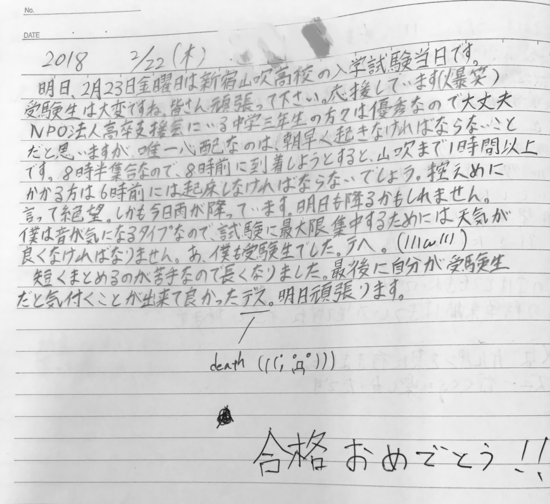 No.
DATE
2018 2/22 (木)
明日、2月23日金曜日は新宿山吹高校の入学試験当日です。
受験生は大変ですね。皆さん頑張って下さい。応援しています(爆笑)
NPO法人高卒支援会にいる中学三年生の方々は優秀なので大丈夫
だと思いますが、唯一心配なのは、朝早く起きなければならないこと
です。8時半集合なので、8時前に到着しようとすると、山吹まで1時間以上
かかる方は6時前には起床しなければならないでしょう。控えめに
言って絶望。しかも今日雨が降っています。明日も降るかもしれません。
僕は音が気になるタイプなので、試験に最大限集中するためには天気が
良くなければなりません。あ、僕も受験生でした。テヘ。(///ω///)
短くまとめるのが苦手なので長くなりました。最後に自分が受験生
だと気付くことが出来て良かったデス。明日頑張ります。
death (((;゚Д゚)))
合格おめでとう!!